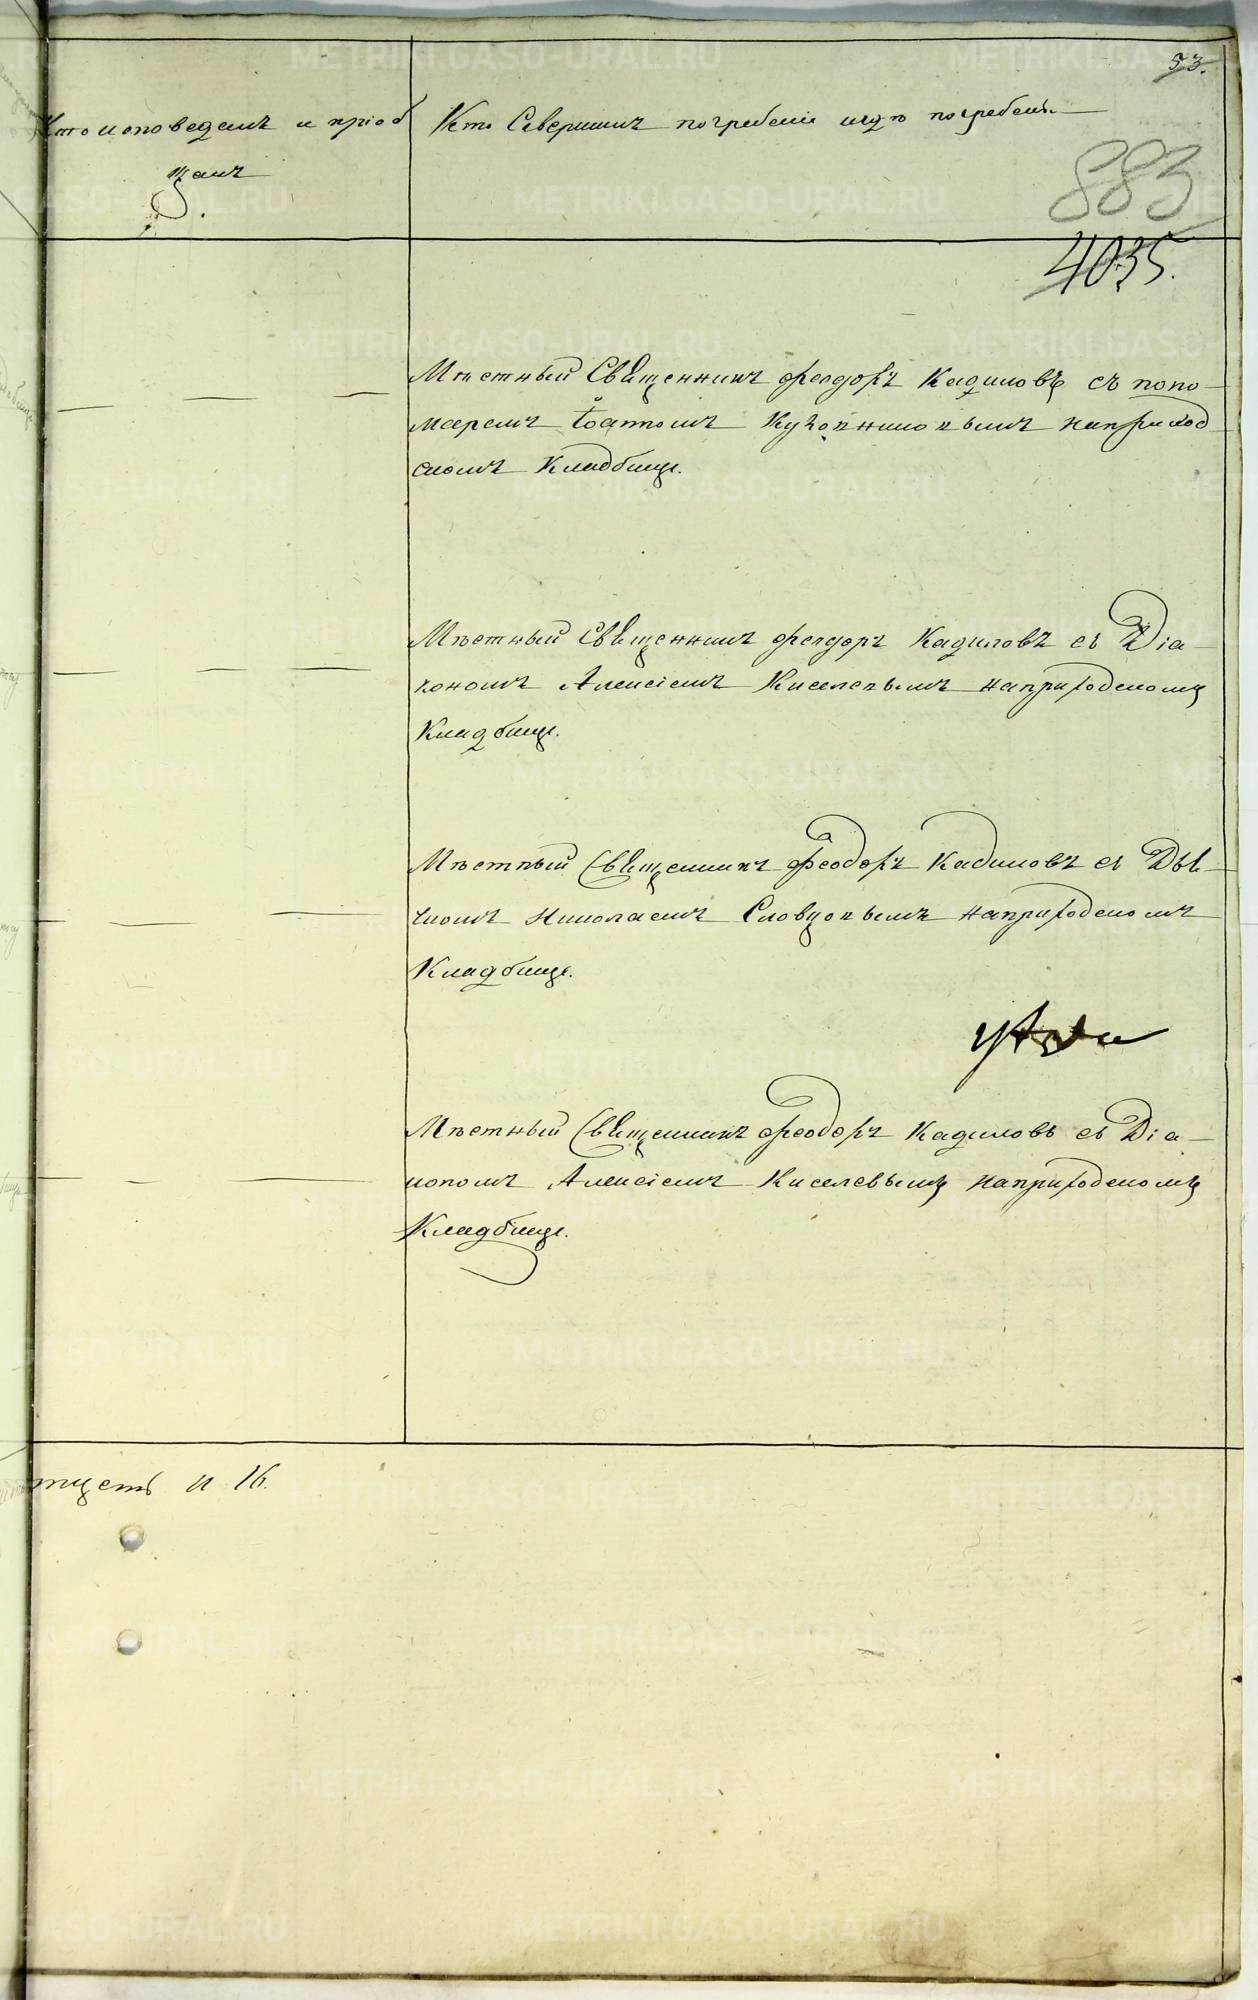 53.
Кто исповедалъ и пріоб
щалъ
Кто Совершилъ погребеніе игдѣ погребены
883
4035.
Мѣстный Священникъ Феодоръ Кадиловъ съ поно-
маремъ Іоанномъ наприход
скомъ Кладбищѣ.
Мѣстный Священникъ Феодоръ Кадиловъ съ Діа-
кономъ Алексіемъ Киселевымъ наприходскомъ
Кладбищѣ.
Мѣстный Священникъ Феодоръ Кадиловъ съ Дья-
чкомъ Николаемъ Словцовымъ наприходскомъ
Кладбищѣ.
Мѣстный Священникъ Феодоръ Кадиловъ съ Діа-
кономъ Алексіемъ Киселевымъ наприходскомъ
Кладбищѣ.
и 16.
METRIKI.GASO-URAL.RU